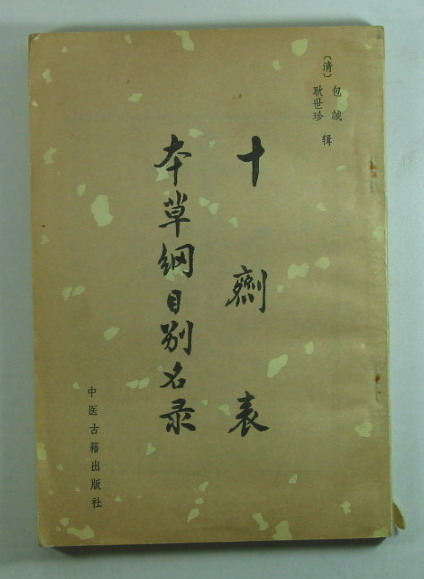 〔清〕 包诚
耿世珍 辑
十劑表
本草纲目别名录
中医古籍出版社